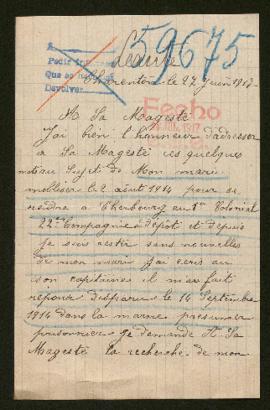 59675
A
Pedir
Que se
Devolver
Charenton le 27 Juin 1917
Fecho
A Sa Magesté
J'ai bien l'honneur d'adresser
à Sa Magesté ces quelques
mots au Sujet de Mon mari
mobiliser le 2 août 1914 pour se
rendre à Cherbourg au 1er Colonial
22eme Compagnie dépôt et depuis
je suis resté sans nouvelles
de mon mari j'ai écris au
son capitaines il m'as fait
réponse Disparu le 14 Septembre
1914 dans la marne présumer
prisonnier je demande A Sa
Magesté la recherche de mon